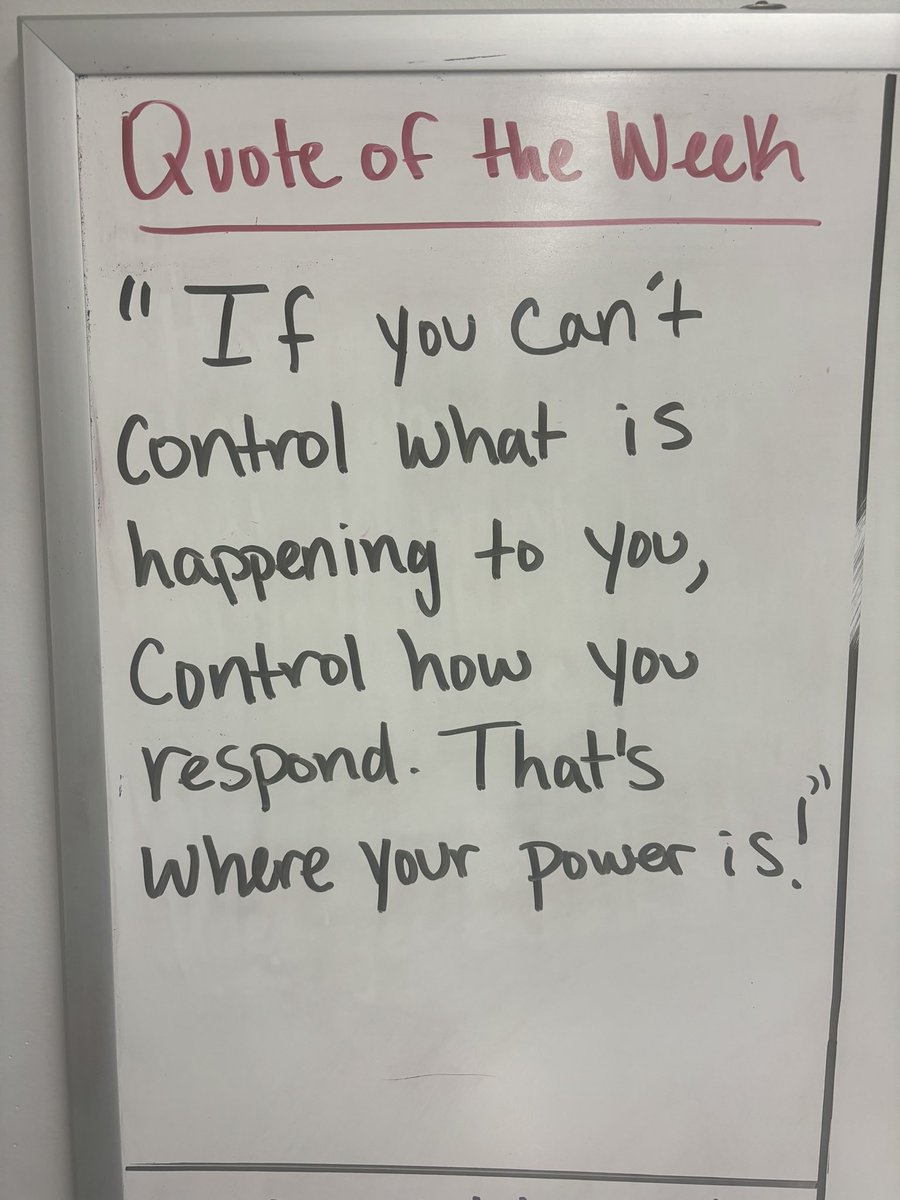 Quote of the Week
"If you can't
control what is
happening to you,
Control how you
respond. That's
where your power is!"